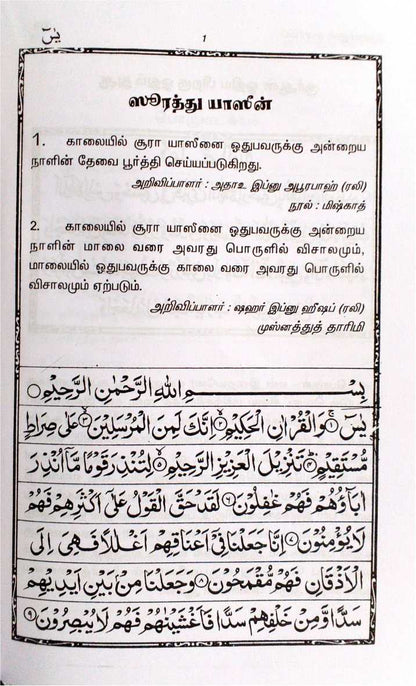 يٰسٓ
1
ஸூரத்து யாஸீன்
1. காலையில் சூரா யாஸீனை ஓதுபவருக்கு அன்றைய
நாளின் தேவை பூர்த்தி செய்யப்படுகிறது.
அறிவிப்பாளர் : அதாஉ இப்னு அபூரபாஹ் (ரலி)
நூல் : மிஷ்காத்
2. காலையில் சூரா யாஸீனை ஓதுபவருக்கு அன்றைய
நாளின் மாலை வரை அவரது பொருளில் விசாலமும்,
மாலையில் ஓதுபவருக்கு காலை வரை அவரது பொருளில்
விசாலமும் ஏற்படும்.
அறிவிப்பாளர் : ஷஹர் இப்னு ஹீஷப் (ரலி)
முஸ்னத்துத் தாரிமி
بِسْمِ اللهِ الرَّحْمٰنِ الرَّحِيْمِ ○
يٰسٓ ۝١ وَالْقُرْاٰنِ الْحَكِيْمِ ۝٢ اِنَّكَ لَمِنَ الْمُرْسَلِيْنَ ۝٣ عَلٰى صِرَاطٍ
مُّسْتَقِيْمٍ ۝٤ تَنْزِيْلَ الْعَزِيْزِ الرَّحِيْمِ ۝٥ لِتُنْذِرَ قَوْمًا مَّآ اُنْذِرَ
اٰبَآؤُهُمْ فَهُمْ غٰفِلُوْنَ ۝٦ لَقَدْ حَقَّ الْقَوْلُ عَلٰٓى اَكْثَرِهِمْ فَهُمْ
لَا يُؤْمِنُوْنَ ۝٧ اِنَّا جَعَلْنَا فِيْٓ اَعْنَاقِهِمْ اَغْلٰلًا فَهِيَ اِلَى
الْاَذْقَانِ فَهُمْ مُّقْمَحُوْنَ ۝٨ وَجَعَلْنَا مِنْۢ بَيْنِ اَيْدِيْهِمْ
سَدًّا وَّمِنْ خَلْفِهِمْ سَدًّا فَاَغْشَيْنٰهُمْ فَهُمْ لَا يُبْصِرُوْنَ ۝٩